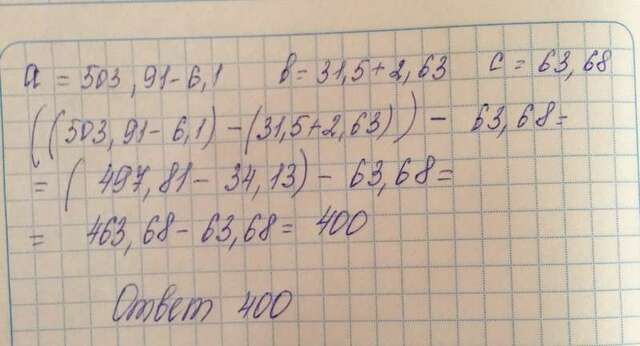 a = 503,91-6,1 b = 31,5+2,63 c = 63,68
((503,91-6,1)-(31,5+2,63)) - 63,68=
= (497,81-34,13) - 63,68=
= 463,68-63,68= 400
Ответ 400